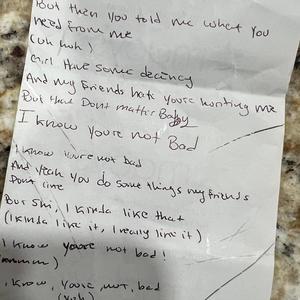 But then you told me what you
need from me
(uh huh)
Girl Have some decincy
And my friends hate you're hurting me
But that Dont matter Baby
I know you're not Bad
I know you're not bad
And yeah you do some things my friends
Dont like
But Shi, I kinda like that
(I kinda like it, I really like it)
I know you're not bad!
I, know, you're, not, bad
(yuh)